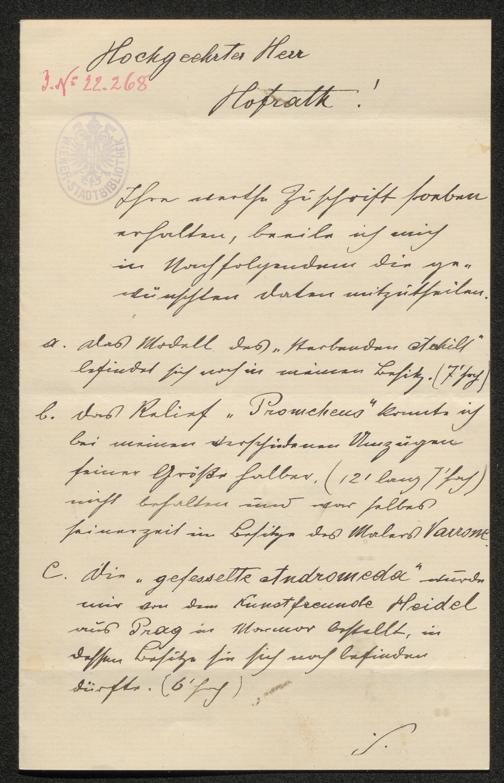 Hochgeehrter Herr
J.N° 22.268
Hofrath!
WIENER STADTBIBLIOTHEK
Ihre werthe Zuschrift soeben
erhalten, beeile ich mich
in Nachfolgendem die ge-
wünschten Daten mitzutheilen.
a. Das Modell des „sterbenden Achill"
befindet sich noch in meinem Besitz. (7' hoch)
b. Das Relief „Prometheus" konnte ich
bei meinen verschiedenen Umzügen
seiner Größe halber. (12' lang 7' hoch)
nicht behalten und war selbes
seinerzeit im Besitze des Malers Varrone
C. Die „gefesselte Andromeda" wurde
mir von dem Kunstfreunde Heidel
aus Prag in Marmor bestellt, in
dessen Besitze sie sich noch befinden
dürfte. (6' hoch)